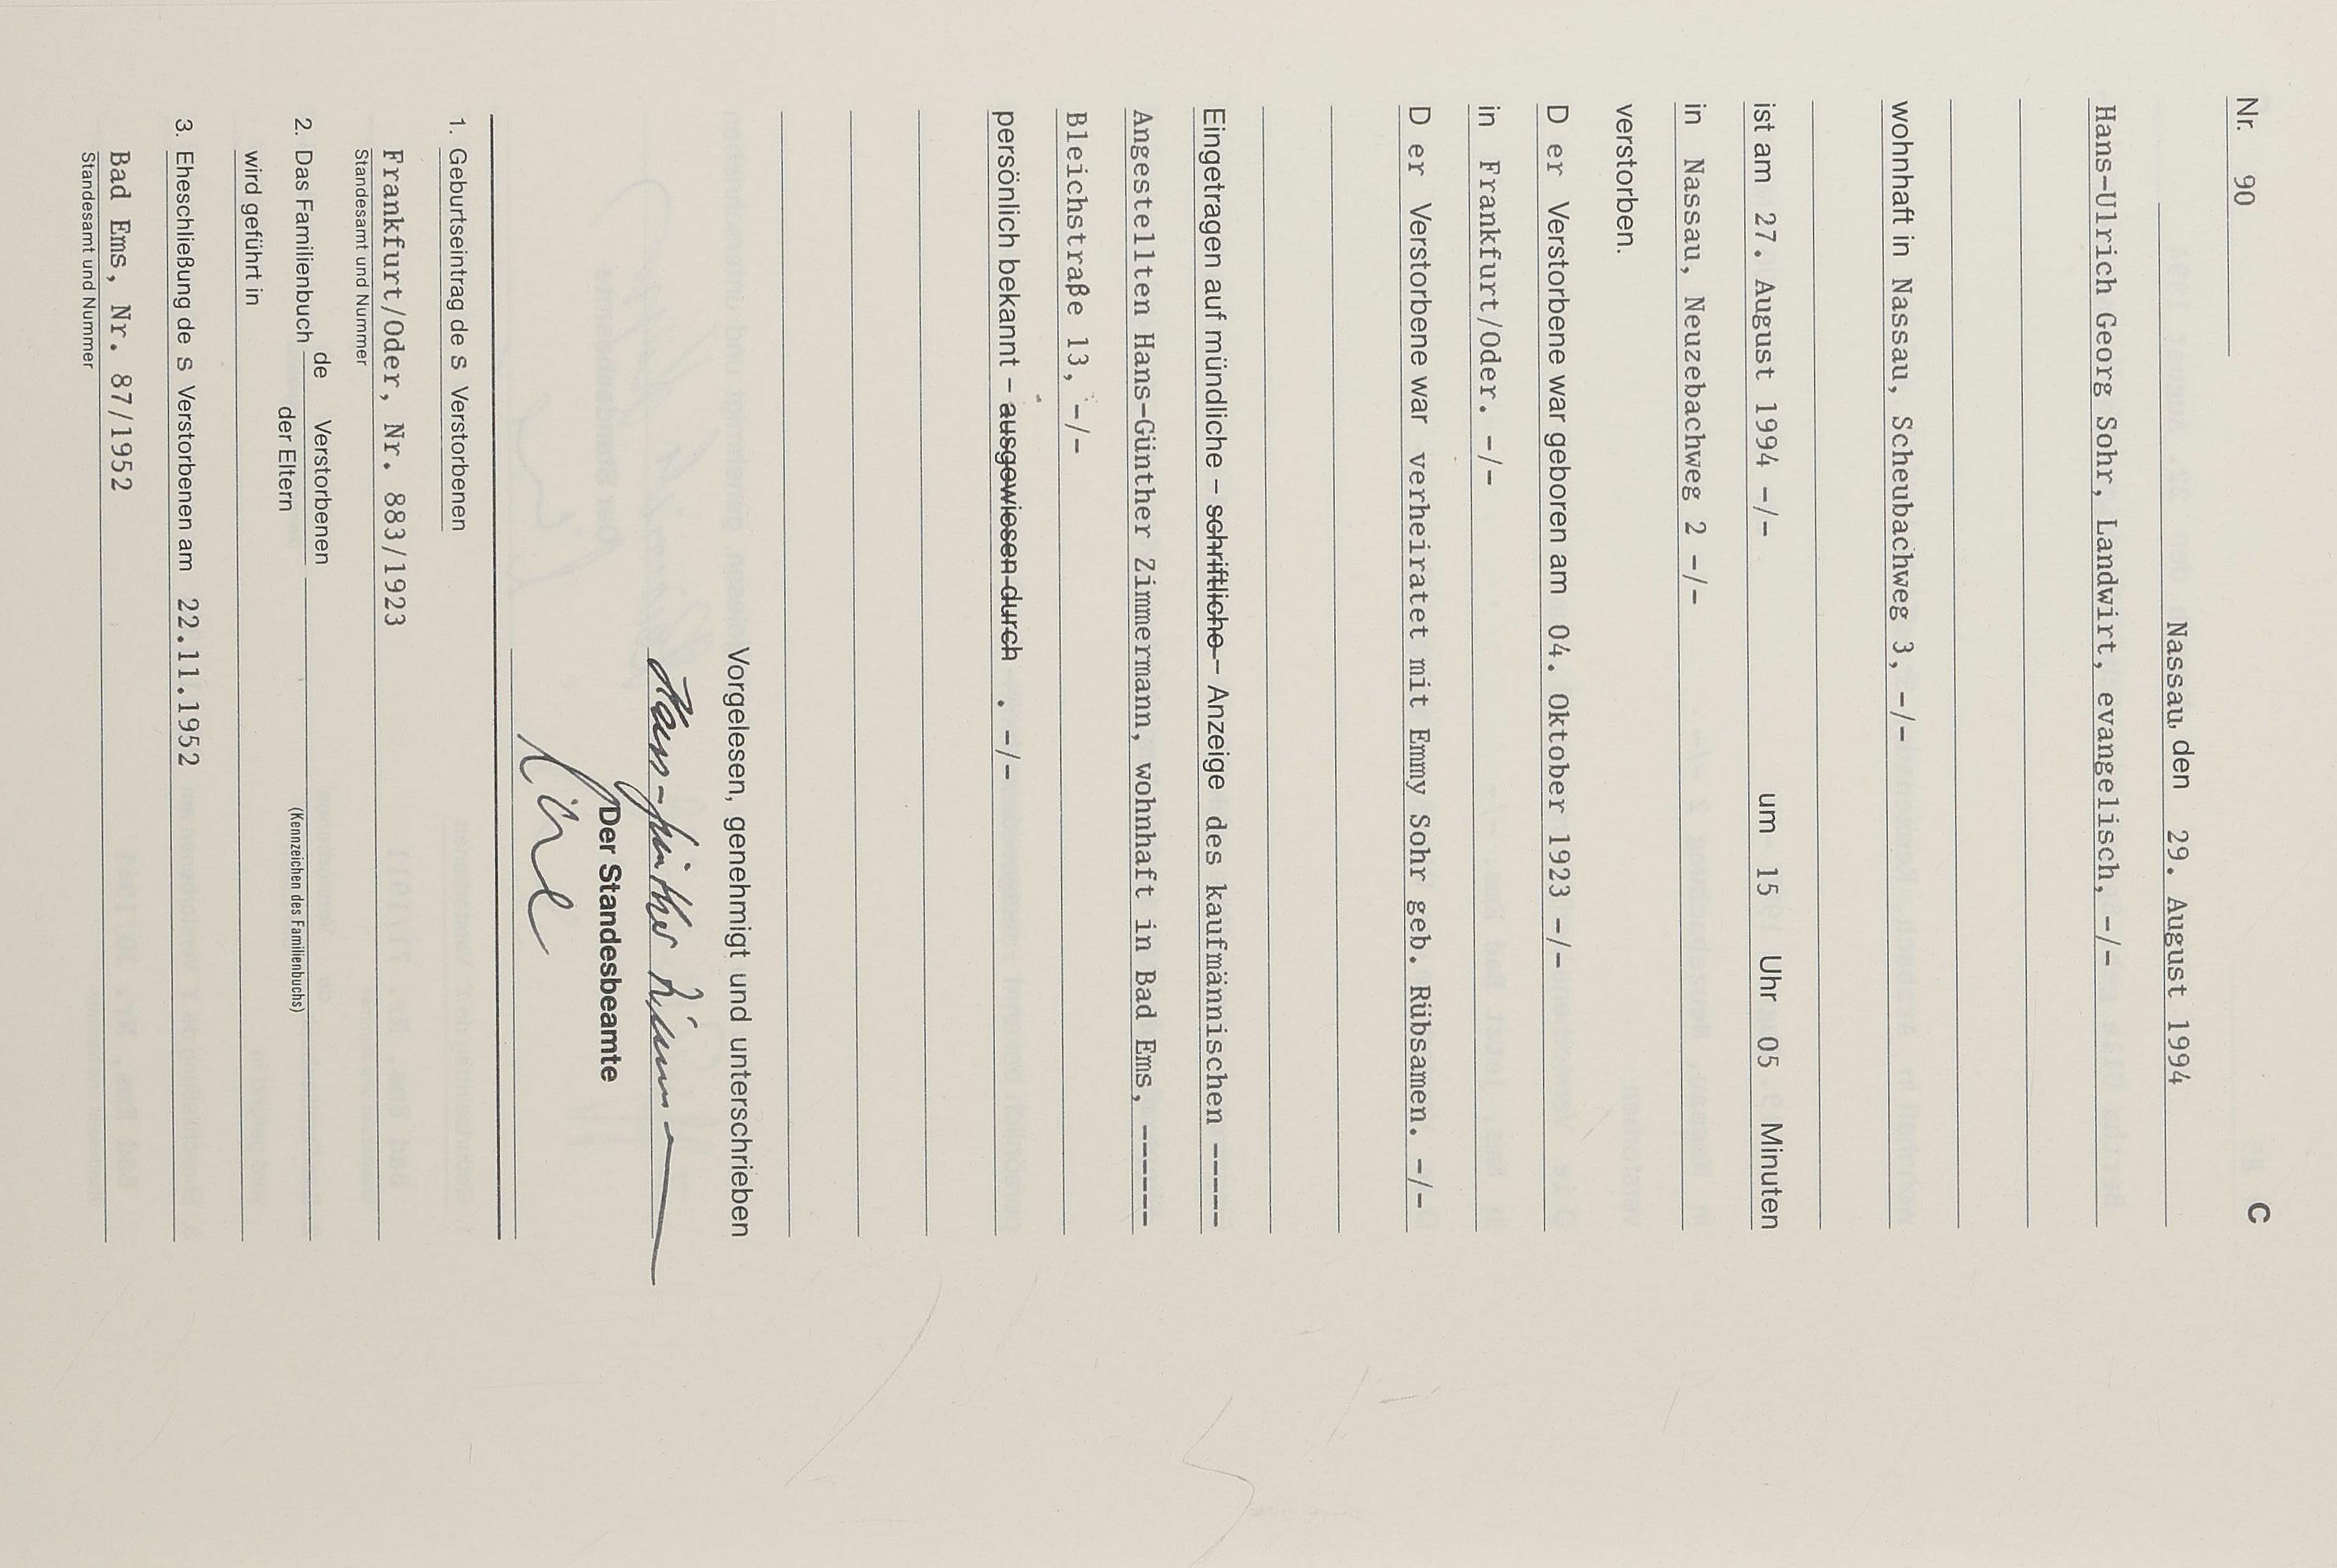 C
Nr. 90
Nassau, den 29. August 1994
Hans-Ulrich Georg Sohr, Landwirt, evangelisch, -/-
wohnhaft in Nassau, Scheubachweg 3, -/-
ist am 27. August 1994 -/- um 15 Uhr 05 Minuten
in Nassau, Neuzebachweg 2 -/-
verstorben.
D er Verstorbene war geboren am 04. Oktober 1923 -/-
in Frankfurt/Oder. -/-
D er Verstorbene war verheiratet mit Emmy Sohr geb. Rübsamen. -/-
Eingetragen auf mündliche – schriftliche – Anzeige des kaufmännischen -----
Angestellten Hans-Günther Zimmermann, wohnhaft in Bad Ems, ------
Bleichstraße 13, -/-
persönlich bekannt – ausgewiesen durch . -/-
Vorgelesen, genehmigt und unterschrieben
Hans-Günther
Der Standesbeamte
1. Geburtseintrag de s Verstorbenen
Frankfurt/Oder, Nr. 883/1923
Standesamt und Nummer
2. Das Familienbuch de Verstorbenen
der Eltern
(Kennzeichen des Familienbuchs)
wird geführt in
3. Eheschließung de s Verstorbenen am 22.11.1952
Bad Ems, Nr. 87/1952
Standesamt und Nummer